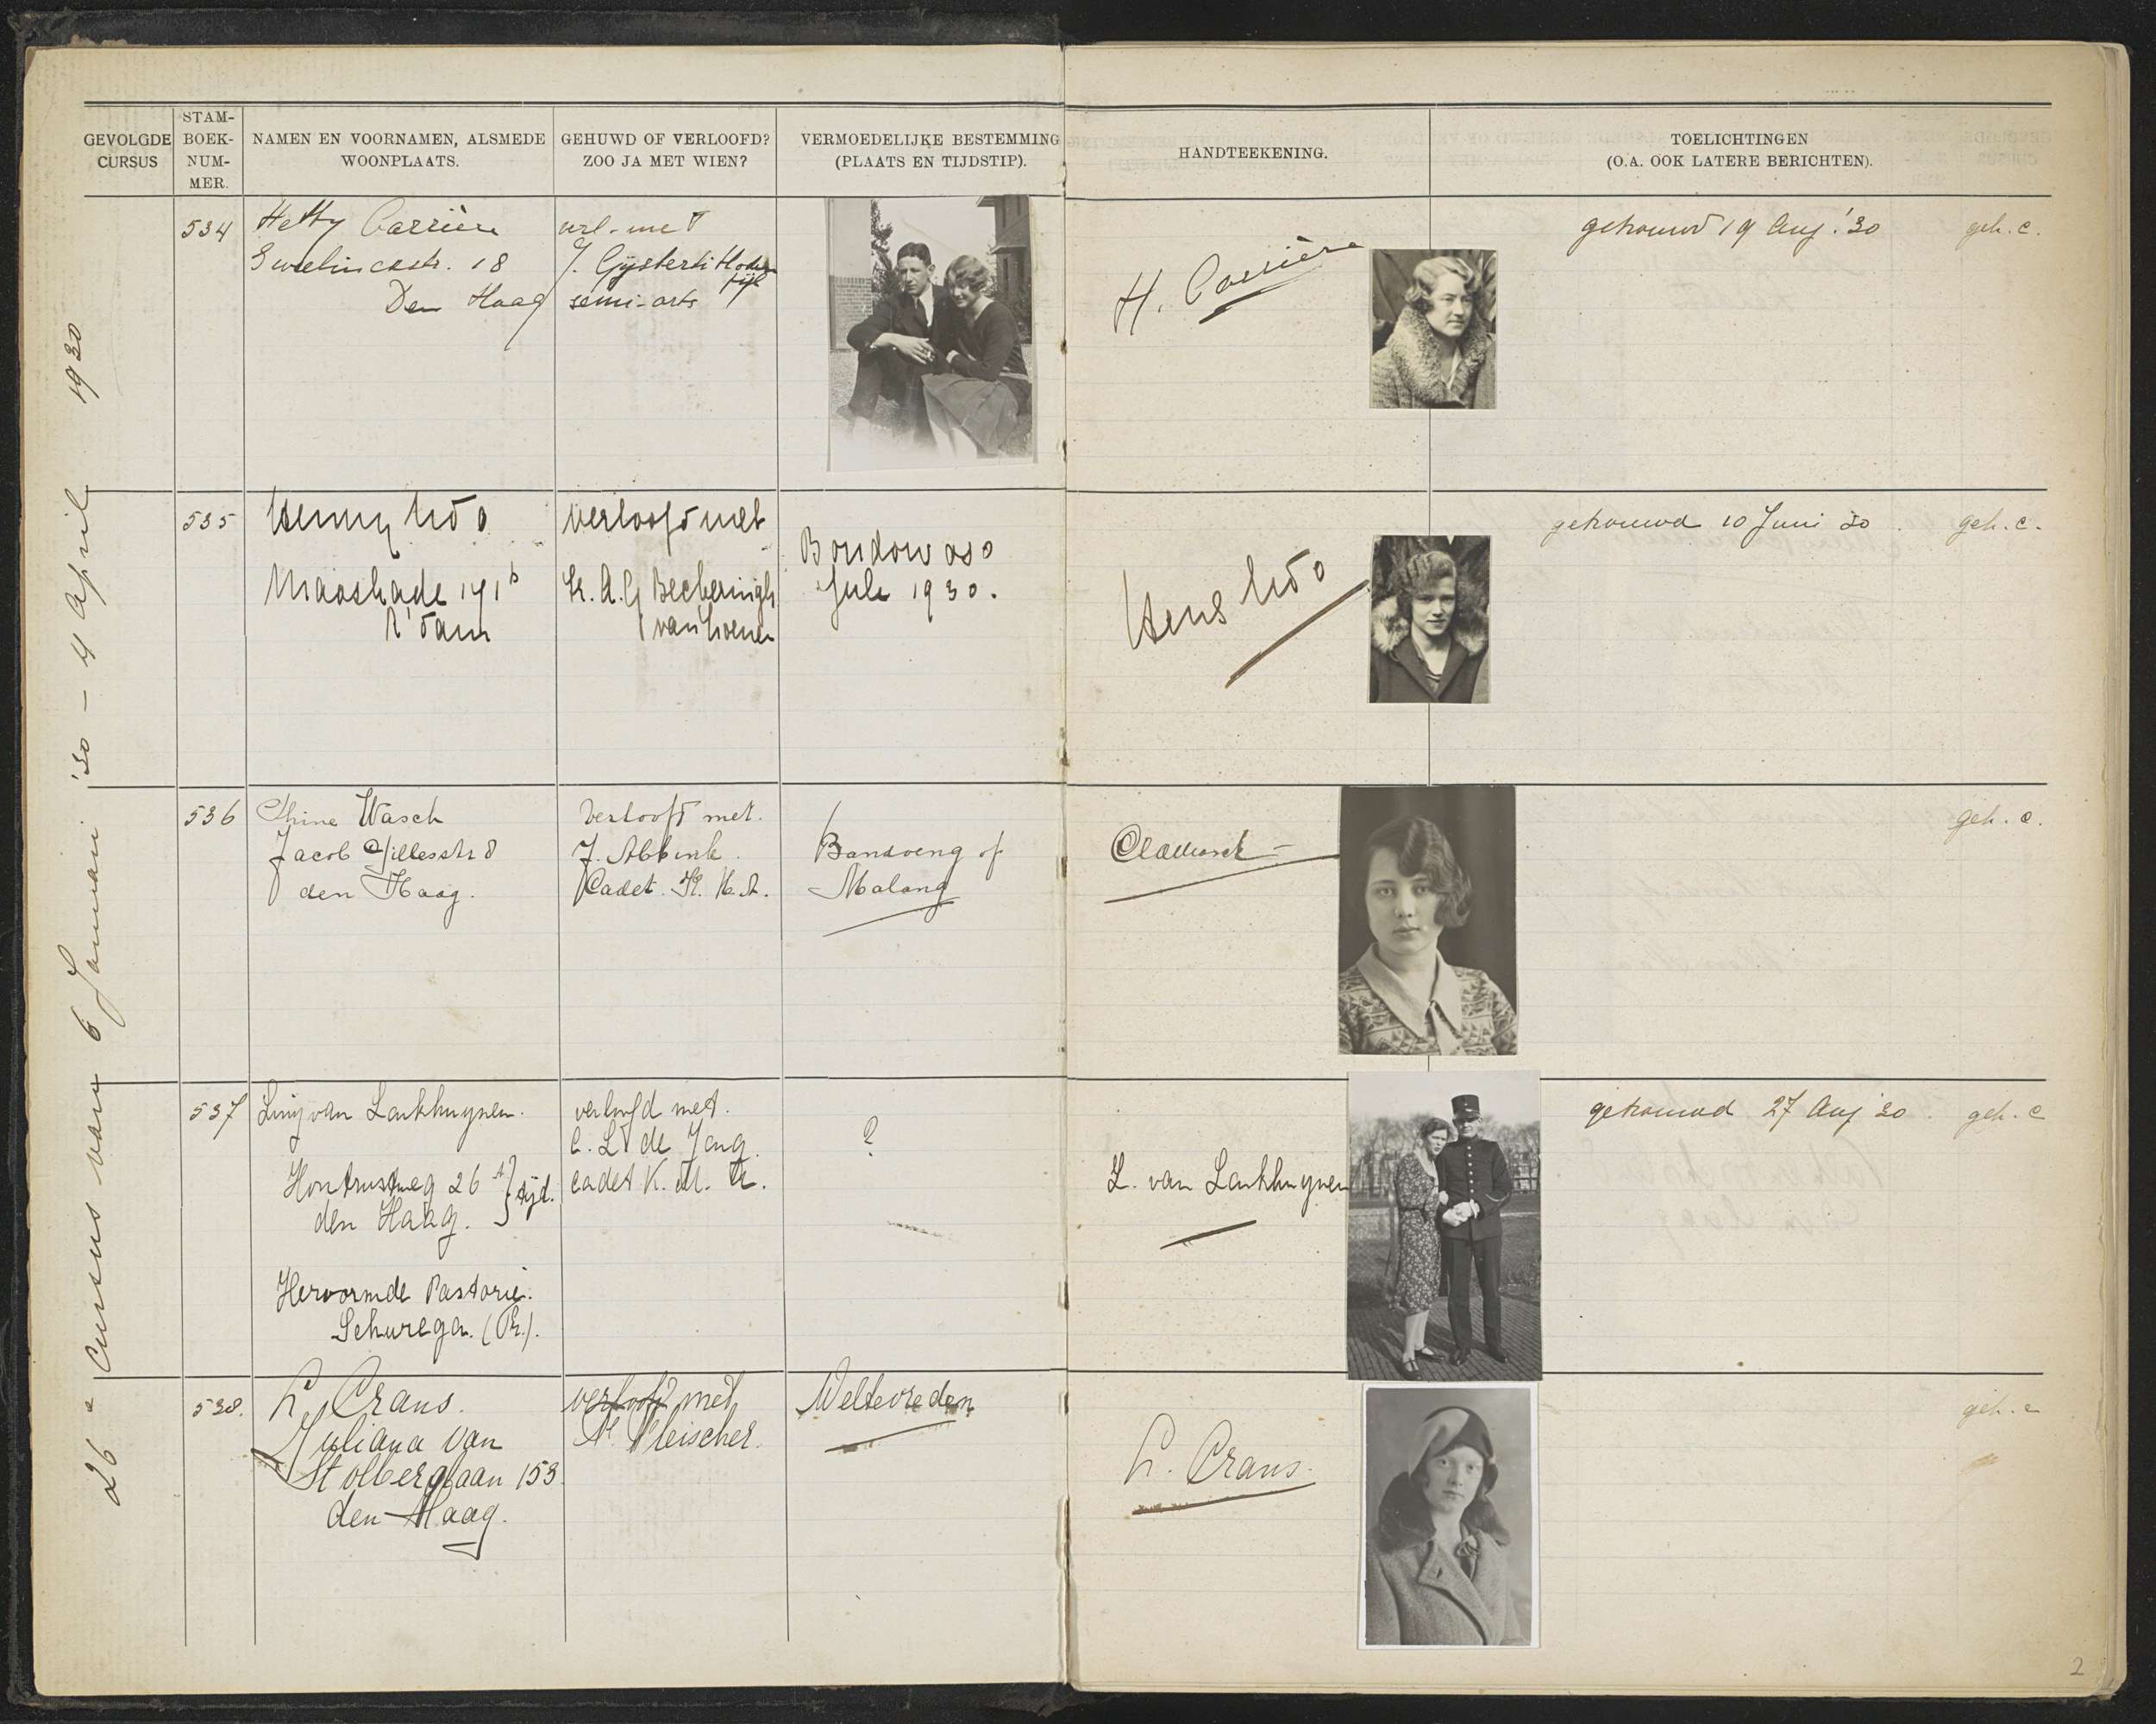 GEVOLGDE CURSUS
STAM-BOEK-NUM-MER.
NAMEN EN VOORNAMEN, ALSMEDE WOONPLAATS.
GEHUWD OF VERLOOFD? ZOO JA MET WIEN?
VERMOEDELIJKE BESTEMMING (PLAATS EN TIJDSTIP).
HANDTEEKENING.
TOELICHTINGEN (O.A. OOK LATERE BERICHTEN).
26e Cursus van 6 Januari '30 – 4 April 1930
534
Hetty Carrière
Swelinckstr. 18
Den Haag
verl. met
J. Gijsberti Hoden
pijl
semi-arts
H. Carrière
getrouwd 19 Aug. '30
geh. c.
535
Henny Udo
Maaskade 171b
R'dam
verloofd met
van Loenen
Bondowoso
Juli 1930.
Hens Udo
getrouwd 10 Juni 30
geh. c.
536
Thine Wasch
Jacob Gillesstr 8
den Haag.
Verloofd met.
J. Abbink.
Cadet. K. M. A.
Bandoeng of
Malang
geh. c.
537
van Lankhuyzen.
Houtrustweg 26
den Haag.
tijd.
Hervormde Pastorie.
verloofd met.
C. L. de Jong.
cadet K. M. A.
?
L. van Lankhuyzen
getrouwd 27 Aug '30.
geh. c
538.
L. Crans.
Juliana van
Stolberglaan 153
den Haag.
verloofd met
Fleischer.
Weltevreden
L. Crans.
geh. c
2